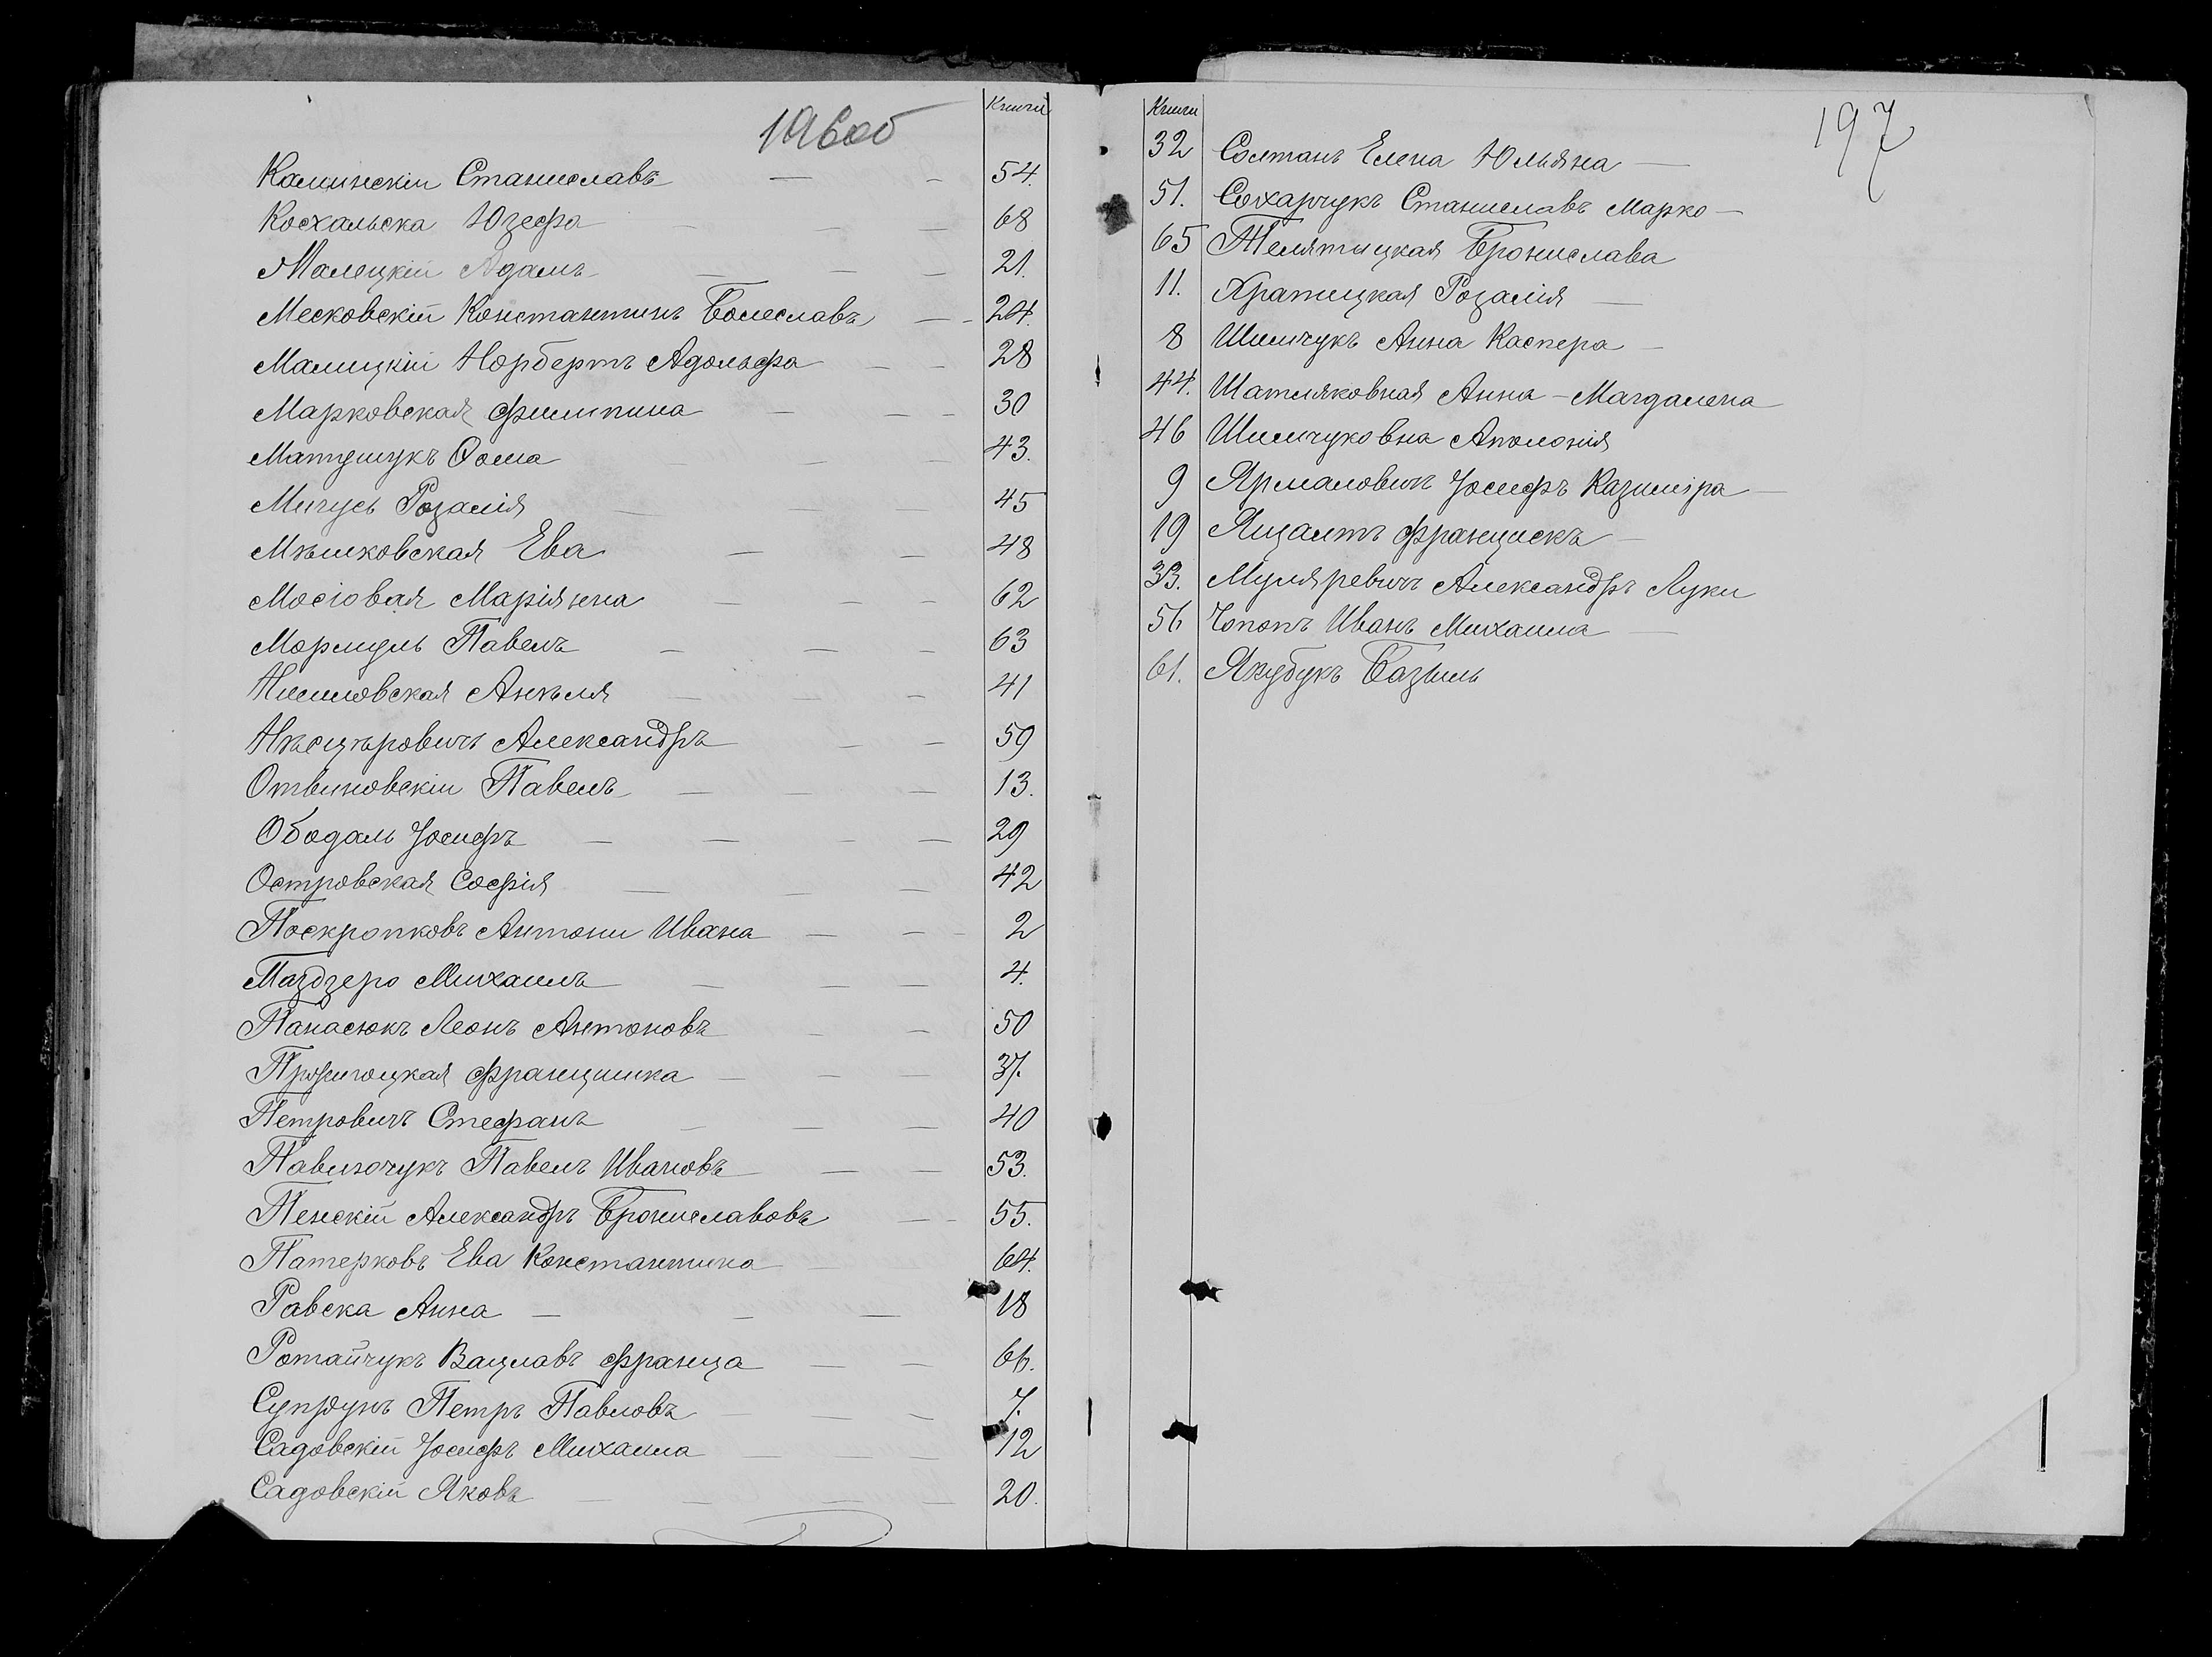 196об
Книги
Каминскiи Станиславъ 54.
Косхальска Юзефа 68
Малецкiй Адамъ 21.
Месковскiй Константинъ Болеславъ 24.
Малицкiй Норбертъ Адольфа 28
Марковская Филипина 30
Матушукъ Ѳома 43.
Мигусь Розалiя 45
Мѣшковская Ева 48
Мосiовая Марiянна 62
Мормуль Павелъ 63
Анѣля 41
Нѣсцѣровичъ Александръ 59
Отвиновскiи Павелъ 13.
Ободаль Iосифъ 29
Островская Софiя 42
Поскропковъ Антони Ивана 2
Паздзеро Михаилъ 4.
Панасюкъ Леонъ Антоновъ 50
Францишка 37.
Петровичъ Стефанъ 40
Павлючукъ Павелъ Ивановъ 53.
Пенскiй Александръ Брониславовъ 55.
Патерковъ Ева Константина 64.
Равска Анна 18
Ротайчукъ Вацлавъ Франца 66.
Супрунъ Петръ Павловъ 7.
Садовскiй Iосифъ Михаила 12
Садовскiй Яковъ 20.
197
Книги
32 Солтанъ Елена Юльяна
51. Сохарчукъ Станиславъ Марко
65 Телятицкая Бронислава
11. Храпицкая Розалiя
8 Шимчукъ Анна Каспера
44. Анна-Магдалена
46 Шимчуковна Аполонiя
9 Ярмаловичъ Iосифъ Казимiра
19 Францискъ
33. Муляревичъ Александръ Луки
56 Чопопъ Иванъ Михаила
61. Якубукъ Базыль